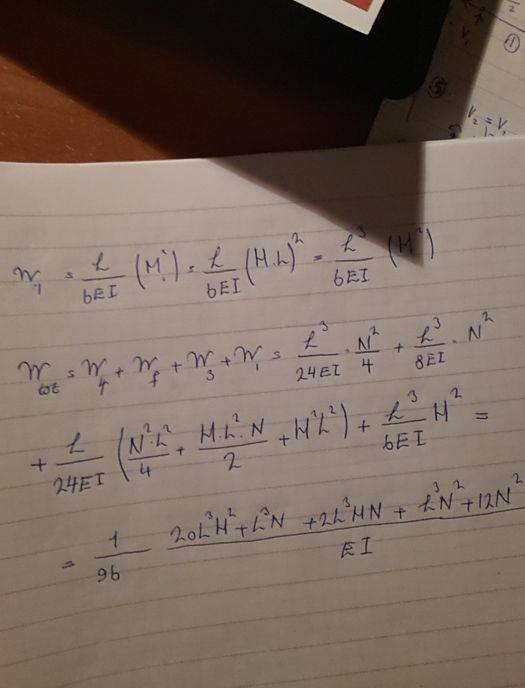 2
①
⑤
V₂ = V₁
W₁ = L/6EI (M₁²) = L/6EI (H.L)² = L³/6EI (H²)
W_tot = W₄ + W_f + W₃ + W₁ = L³/24EI · N²/4 + L³/8EI · N²
+ L/24EI (N².L²/4 + H.L².N/2 + H²L²) + L³/6EI H² =
= 1/96 20L³H² + L³N + 2L³HN + L³N² + 12N²/EI